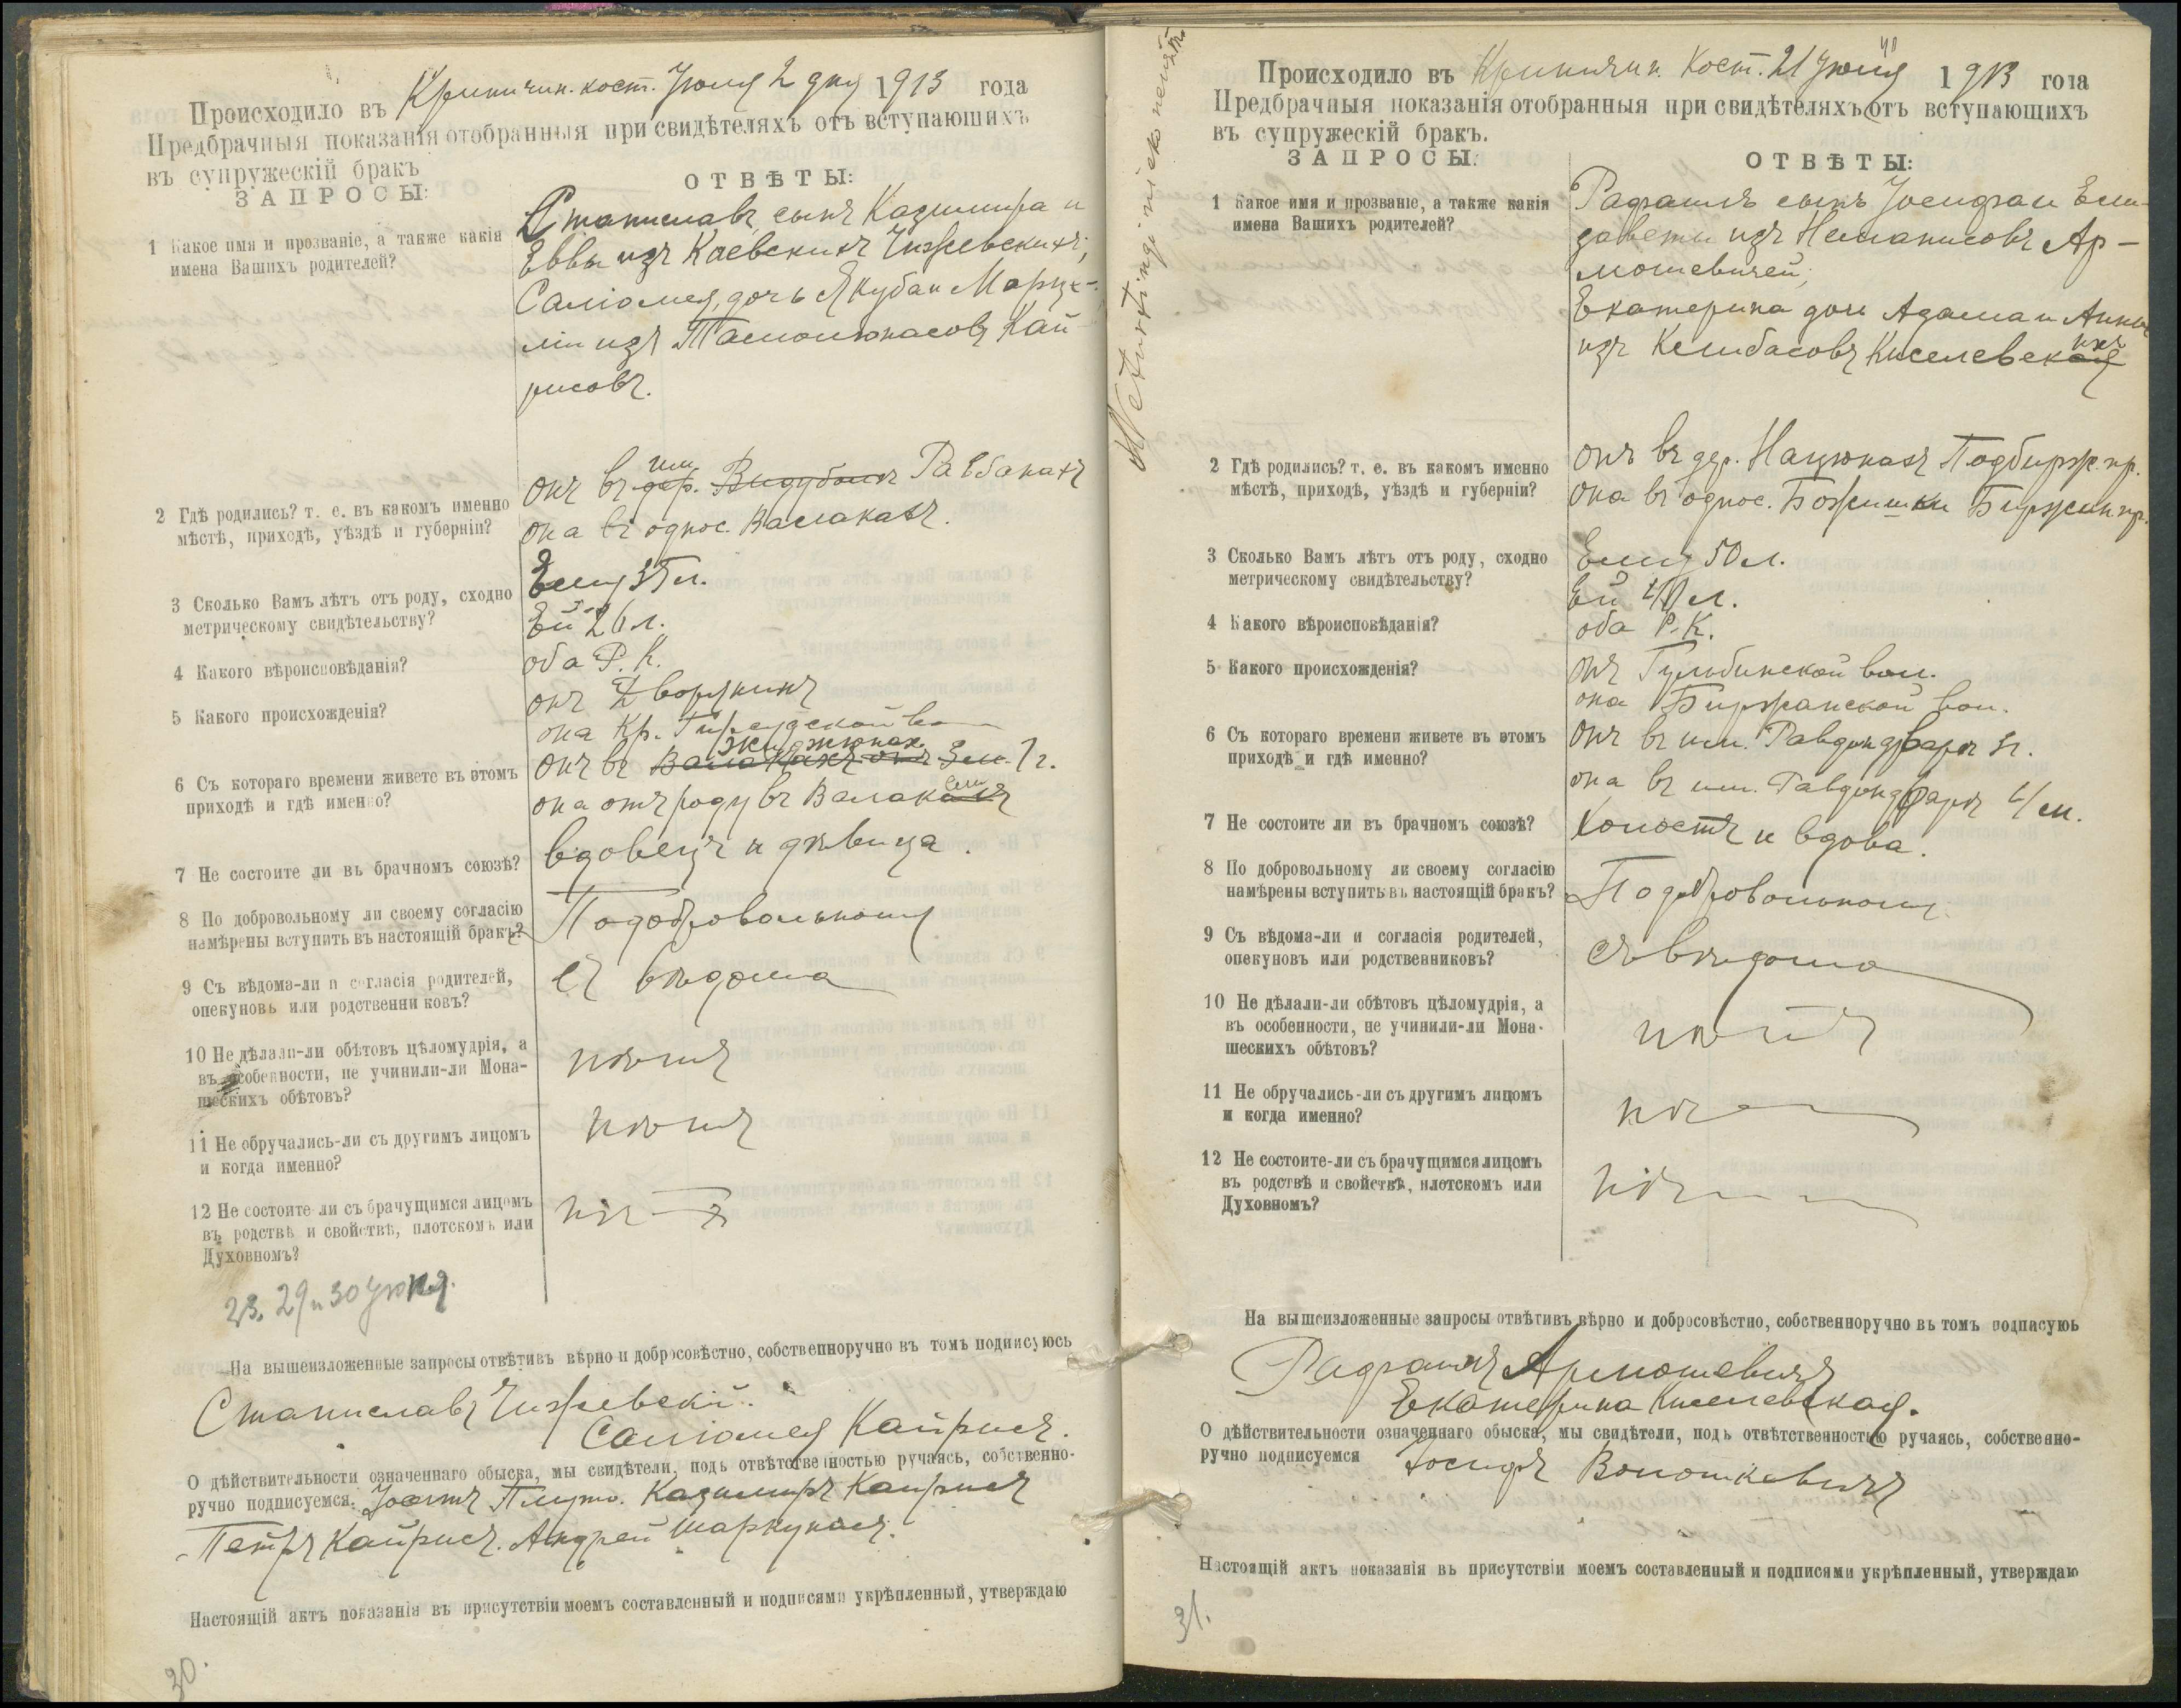 Происходило въ Криничин. кост. Іюня 2 дня 1913 года
Предбрачныя показанія отобранныя при свидѣтеляхъ отъ вступающихъ
въ супружескій бракъ
ЗАПРОСЫ:
ОТВѢТЫ:
1 Какое имя и прозваніе, а также какія
имена Вашихъ родителей?
Станиславъ сынъ Казимира и
Еввы изъ Каевскихъ Чижевскихъ;
Саліомея, дочь Якуба и
изъ Кай-
рисовъ.
2 Гдѣ родились? т. е. въ какомъ именно
мѣстѣ, приходѣ, уѣздѣ и губерніи?
онъ въ им. дер.
она въ однос. Валакахъ.
3 Сколько Вамъ лѣтъ отъ роду, сходно
метрическому свидѣтельству?
Ему 35 л.
Ей 26 л.
4 Какого вѣроисповѣданія?
оба Р. К.
5 Какого происхожденія?
онъ Дворянинъ
она Кр.
6 Съ котораго времени живете въ этомъ
приходѣ и гдѣ именно?
онъ въ 1 г.
она отъ роду въ
7 Не состоите ли въ брачномъ союзѣ?
вдовецъ и дѣвица.
8 По добровольному ли своему согласію
намѣрены вступить въ настоящій бракъ?
По добровольному
9 Съ вѣдома-ли и согласія родителей,
опекуновъ или родственни ковъ?
съ вѣдома
10 Не дѣлали-ли обѣтовъ цѣломудрія, а
въ особенности, не учинили-ли Мона-
шескихъ обѣтовъ?
нѣтъ
11 Не обручались-ли съ другимъ лицомъ
и когда именно?
нѣтъ
12 Не состоите ли съ брачущимся лицомъ
въ родствѣ и свойствѣ, плотскомъ или
Духовномъ?
нѣтъ
23. 29 и 30 Іюня.
На вышеизложенные запросы отвѣтивъ вѣрно и добросовѣстно, собственноручно въ томъ подписуюсь
Станиславъ Чижевскій.
Саліомея Кайрисъ.
О дѣйствительности означеннаго обыска, мы свидѣтели, подъ отвѣтственностью ручаясь, собственно-
ручно подписуемся. Казимиръ Кайрисъ
Петръ Кайрисъ. Андрей Шаркунасъ.
Настоящій актъ показанія въ присутствіи моемъ составленный и подписями укрѣпленный, утверждаю
30.
Происходило въ Криничин. Кост. 21 Іюня 1913 года
Предбрачныя показанія отобранныя при свидѣтеляхъ отъ вступающихъ
въ супружескій бракъ.
ЗАПРОСЫ:
ОТВѢТЫ:
1 Какое имя и прозваніе, а также какія
имена Вашихъ родителей?
Рафаилъ сынъ Іосифа и Ели-
заветы изъ Ар-
мошевичей;
Екатерина дочь Адама и Анны
изъ Келбасовъ Киселевскихъ
2 Гдѣ родились? т. е. въ какомъ именно
мѣстѣ, приходѣ, уѣздѣ и губерніи?
онъ въ дер. Нацюнахъ Подбирж. пр.
она въ однос. Божишки Биржин. пр.
3 Сколько Вамъ лѣтъ отъ роду, сходно
метрическому свидѣтельству?
Ему 50 л.
Ей 40 л.
4 Какого вѣроисповѣданія?
оба Р. К.
5 Какого происхожденія?
онъ Гульбинской вол.
она Биржанской вол.
6 Съ котораго времени живете въ этомъ
приходѣ и гдѣ именно?
онъ въ им. Равдондварѣ
она въ им. Равдондварѣ
7 Не состоите ли въ брачномъ союзѣ?
Холостъ и вдова.
8 По добровольному ли своему согласію
намѣрены вступить въ настоящій бракъ?
По добровольному
9 Съ вѣдома-ли и согласія родителей,
опекуновъ или родственниковъ?
съ вѣдома
10 Не дѣлали-ли обѣтовъ цѣломудрія, а
въ особенности, не учинили-ли Мона-
шескихъ обѣтовъ?
нѣтъ
11 Не обручались-ли съ другимъ лицомъ
и когда именно?
нѣтъ
12 Не состоите-ли съ брачущимся лицомъ
въ родствѣ и свойствѣ, плотскомъ или
Духовномъ?
нѣтъ
На вышеизложенные запросы отвѣтивъ вѣрно и добросовѣстно, собственноручно въ томъ подписуюь
Рафаилъ Армошевичъ
Екатерина Киселевская.
О дѣйствительности означеннаго обыска, мы свидѣтели, подъ отвѣтственностью ручаясь, собственно-
ручно подписуемся Іосифъ Волошкевичъ
Настоящій актъ показанія въ присутствіи моемъ составленный и подписями укрѣпленный, утверждаю
31.